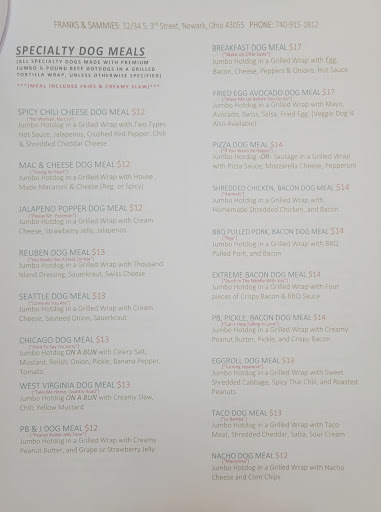 FRANKS & SAMMIES: 32/34 S. 3rd Street, Newark, Ohio 43055 PHONE: 740-915-1812
SPECIALTY DOG MEALS
(ALL SPECIALTY DOGS MADE WITH PREMIUM
JUMBO ¼ POUND BEEF HOTDOGS IN A GRILLED
TORTILLA WRAP, UNLESS OTHERWISE SPECIFIED)
***(MEAL INCLUDES FRIES & CREAMY SLAW)***
SPICY CHILI CHEESE DOG MEAL $12
("No Woman, No Cry")
Jumbo Hotdog in a Grilled Wrap with Two Types
Hot Sauce, Jalapenos, Crushed Red Pepper, Chili
& Shredded Cheddar Cheese
MAC & CHEESE DOG MEAL $12
("Young At Heart")
Jumbo Hotdog in a Grilled Wrap with House
Made Macaroni & Cheese (Reg. or Spicy)
JALAPENO POPPER DOG MEAL $12
("Please Mr. Postman")
Jumbo Hotdog in a Grilled Wrap with Cream
Cheese, Strawberry Jelly, Jalapenos
REUBEN DOG MEAL $13
("You Really Got A Hold On Me")
Jumbo Hotdog in a Grilled Wrap with Thousand
Island Dressing, Sauerkraut, Swiss Cheese
SEATTLE DOG MEAL $13
("Come As You Are")
Jumbo Hotdog in a Grilled Wrap with Cream
Cheese, Sauteed Onion, Sauerkraut
CHICAGO DOG MEAL $13
("Hard To Say I'm Sorry")
Jumbo Hotdog ON A BUN with Celery Salt,
Mustard, Relish, Onion, Pickle, Banana Pepper,
Tomato
WEST VIRGINIA DOG MEAL $13
("Take Me Home, Country Road")
Jumbo Hotdog ON A BUN with Creamy Slaw,
Chili, Yellow Mustard
PB & J DOG MEAL $12
("Peanut Butter Jelly Time")
Jumbo Hotdog in a Grilled Wrap with Creamy
Peanut Butter, and Grape or Strawberry Jelly
BREAKFAST DOG MEAL $17
("Wake Up Little Susie")
Jumbo Hotdog in a Grilled Wrap with Egg,
Bacon, Cheese, Peppers & Onions, Hot Sauce
FRIED EGG AVOCADO DOG MEAL $17
("Wake Me Up Before You Go-Go")
Jumbo Hotdog in a Grilled Wrap with Mayo,
Avocado, Swiss, Salsa, Fried Egg (Veggie Dog is
Also Available)
PIZZA DOG MEAL $14
Jumbo Hotdog -OR- Sausage in a Grilled Wrap
with Pizza Sauce, Mozzarella Cheese, Pepperoni
SHREDDED CHICKEN, BACON DOG MEAL $14
Jumbo Hotdog in a Grilled Wrap with
Homemade Shredded Chicken, and Bacon
BBQ PULLED PORK, BACON DOG MEAL $14
Jumbo Hotdog in a Grilled Wrap with BBQ
Pulled Pork, and Bacon
EXTREME BACON DOG MEAL $14
("Stuck In The Middle With You")
Jumbo Hotdog in a Grilled Wrap with Four
pieces of Crispy Bacon & BBQ Sauce
PB, PICKLE, BACON DOG MEAL $14
("Can't Help Falling In Love")
Jumbo Hotdog in a Grilled Wrap with Creamy
Peanut Butter, Pickle, and Crispy Bacon
EGGROLL DOG MEAL $13
("Turning Japanese")
Jumbo Hotdog in a Grilled Wrap with Sweet
Shredded Cabbage, Spicy Thai Chili, and Roasted
Peanuts
TACO DOG MEAL $13
("La Bamba")
Jumbo Hotdog in a Grilled Wrap with Taco
Meat, Shredded Cheddar, Salsa, Sour Cream
NACHO DOG MEAL $12
("Macarena")
Jumbo Hotdog in a Grilled Wrap with Nacho
Cheese and Corn Chips